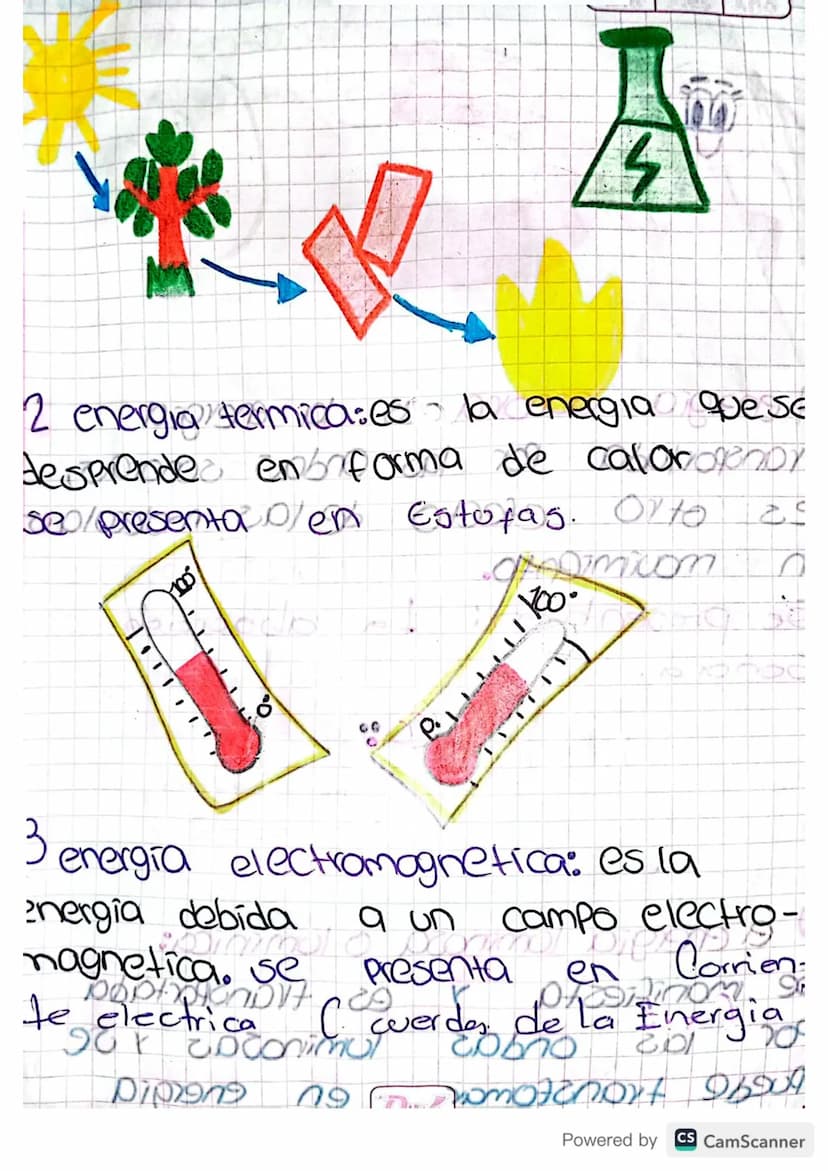 100°
0°
100°
0°
2 energia termica: es la energia que se
desprende en forma de calor
se presenta en Estufas.
3 energia electromagnetica: es la
energia debida a un campo electro-
magnetica. se presenta en Corrien-
te electrica ( cuerdas de la Energia
Powered by CS CamScanner